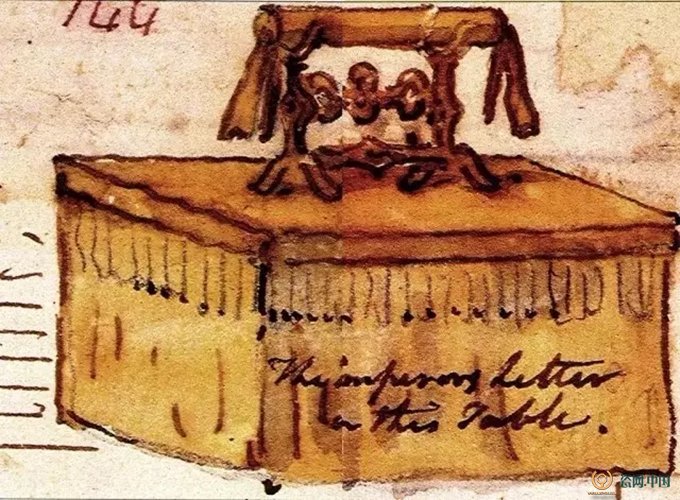 144
The emperors Letter
on this Table.